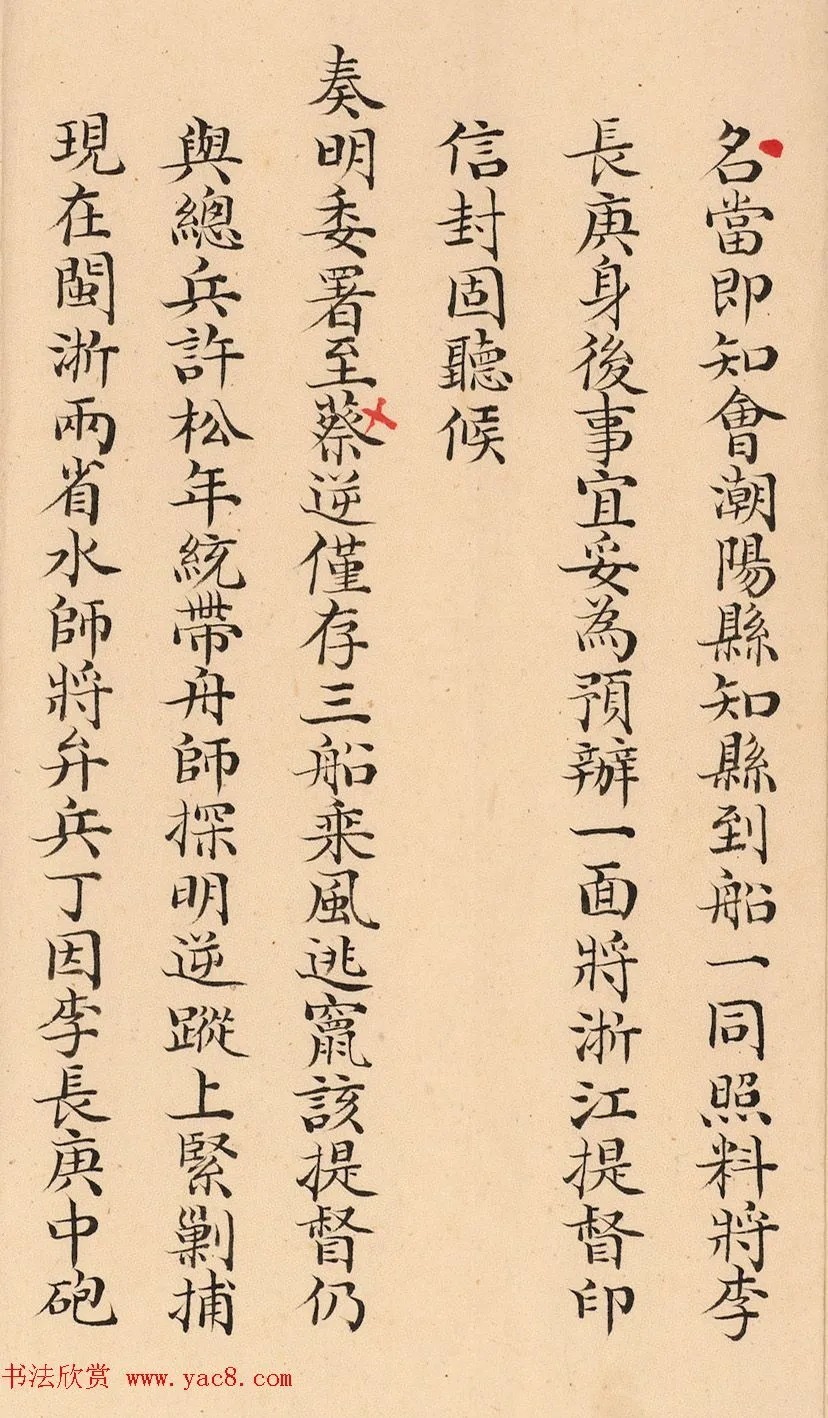 名當即知會潮陽縣知縣到船一同照料將李
長庚身後事宜妥為預辦一面將浙江提督印
信封固聽候
奏明委署至蔡逆僅存三船乘風逃竄該提督仍
與總兵許松年統帶舟師探明逆蹤上緊剿捕
現在閩浙兩省水師將弁兵丁因李長庚中砲
书法欣赏 www.yac8.com